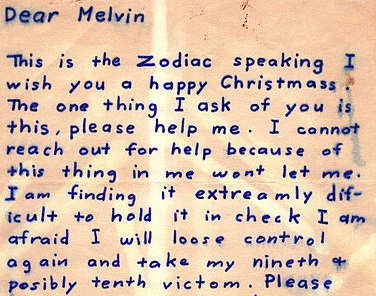 Dear Melvin
This is the Zodiac speaking I
wish you a happy Christmass.
The one thing I ask of you is
this, please help me. I cannot
reach out for help because of
this thing in me wont let me.
I am finding it extreamly dif-
icult to hold it in check I am
afraid I will loose control
again and take my nineth &
posibly tenth victom. Please